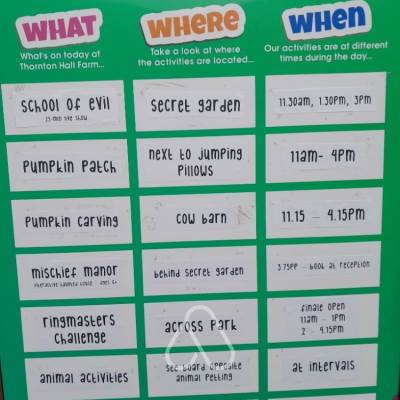 WHAT
What's on today at
Thornton Hall Farm...
WHERE
Take a look at where
the activities are located...
WHEN
Our activities are at different
times during the day...
School of Evil
25-min live show
Secret garden
11.30am, 1.30pm, 3pm
Pumpkin Patch
next to jumping
Pillows
11am- 4pm
Pumpkin carving
cow barn
11.15 - 4.15pm
mischief manor
interactive haunted house - ages 6+
behind secret garden
3.75pp - book at reception
ringmasters
challenge
across Park
finale open
11am - 1pm
2 - 4.15pm
animal activities
see board opposite
animal petting
at intervals